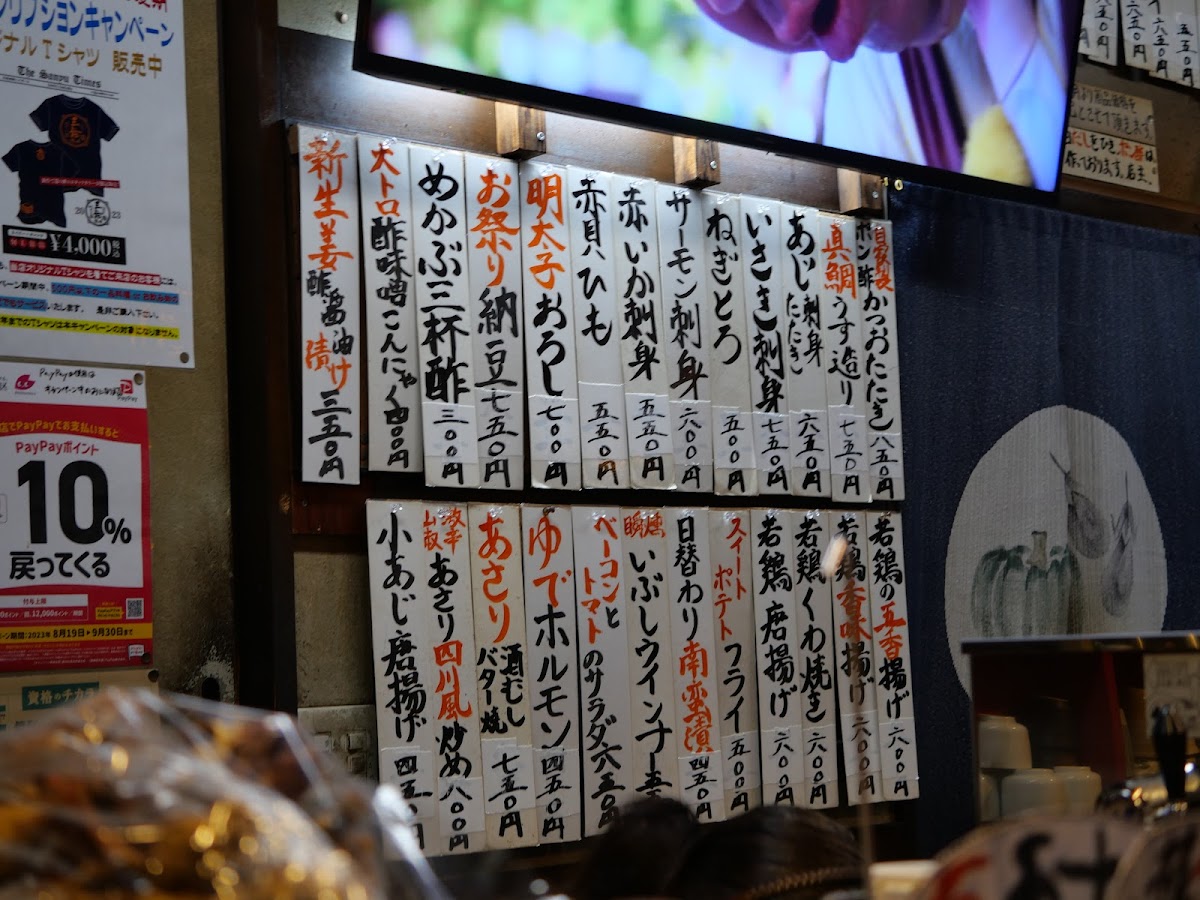 リプションキャンペーン
ジナルTシャツ 販売中
The Sanyu Times
2023
¥4,000税込
PayPay
店でPayPayでお支払いすると
PayPayポイント
10%
戻ってくる
付与上限
期間:2023年8月19日▶9月30日まで
資格のチカラ
自家製ポン酢かつおたたき 八五〇円
真鯛うす造り 七五〇円
あじ刺身(たたき) 六五〇円
いさき刺身 七五〇円
ねぎとろ 五〇〇円
サーモン刺身 六〇〇円
赤いか刺身 五五〇円
赤貝ひも 五五〇円
明太子おろし 七〇〇円
お祭り納豆 七五〇円
めかぶ三杯酢 三〇〇円
大トロ酢味噌こんにゃく 四〇〇円
新生姜酢醤油漬け 三五〇円
若鶏の五香揚げ 六〇〇円
若鶏香味揚げ 六〇〇円
若鶏くわ焼き 六〇〇円
若鶏唐揚げ 六〇〇円
スイートポテトフライ 五〇〇円
日替わり南蛮漬 四五〇円
瞬燻いぶしウインナー
ベーコンとトマトのサラダ 六五〇円
ゆでホルモン 四五〇円
あさり酒むしバター焼 七五〇円
あさり四川風炒め 八〇〇円
小あじ唐揚げ 四五〇円